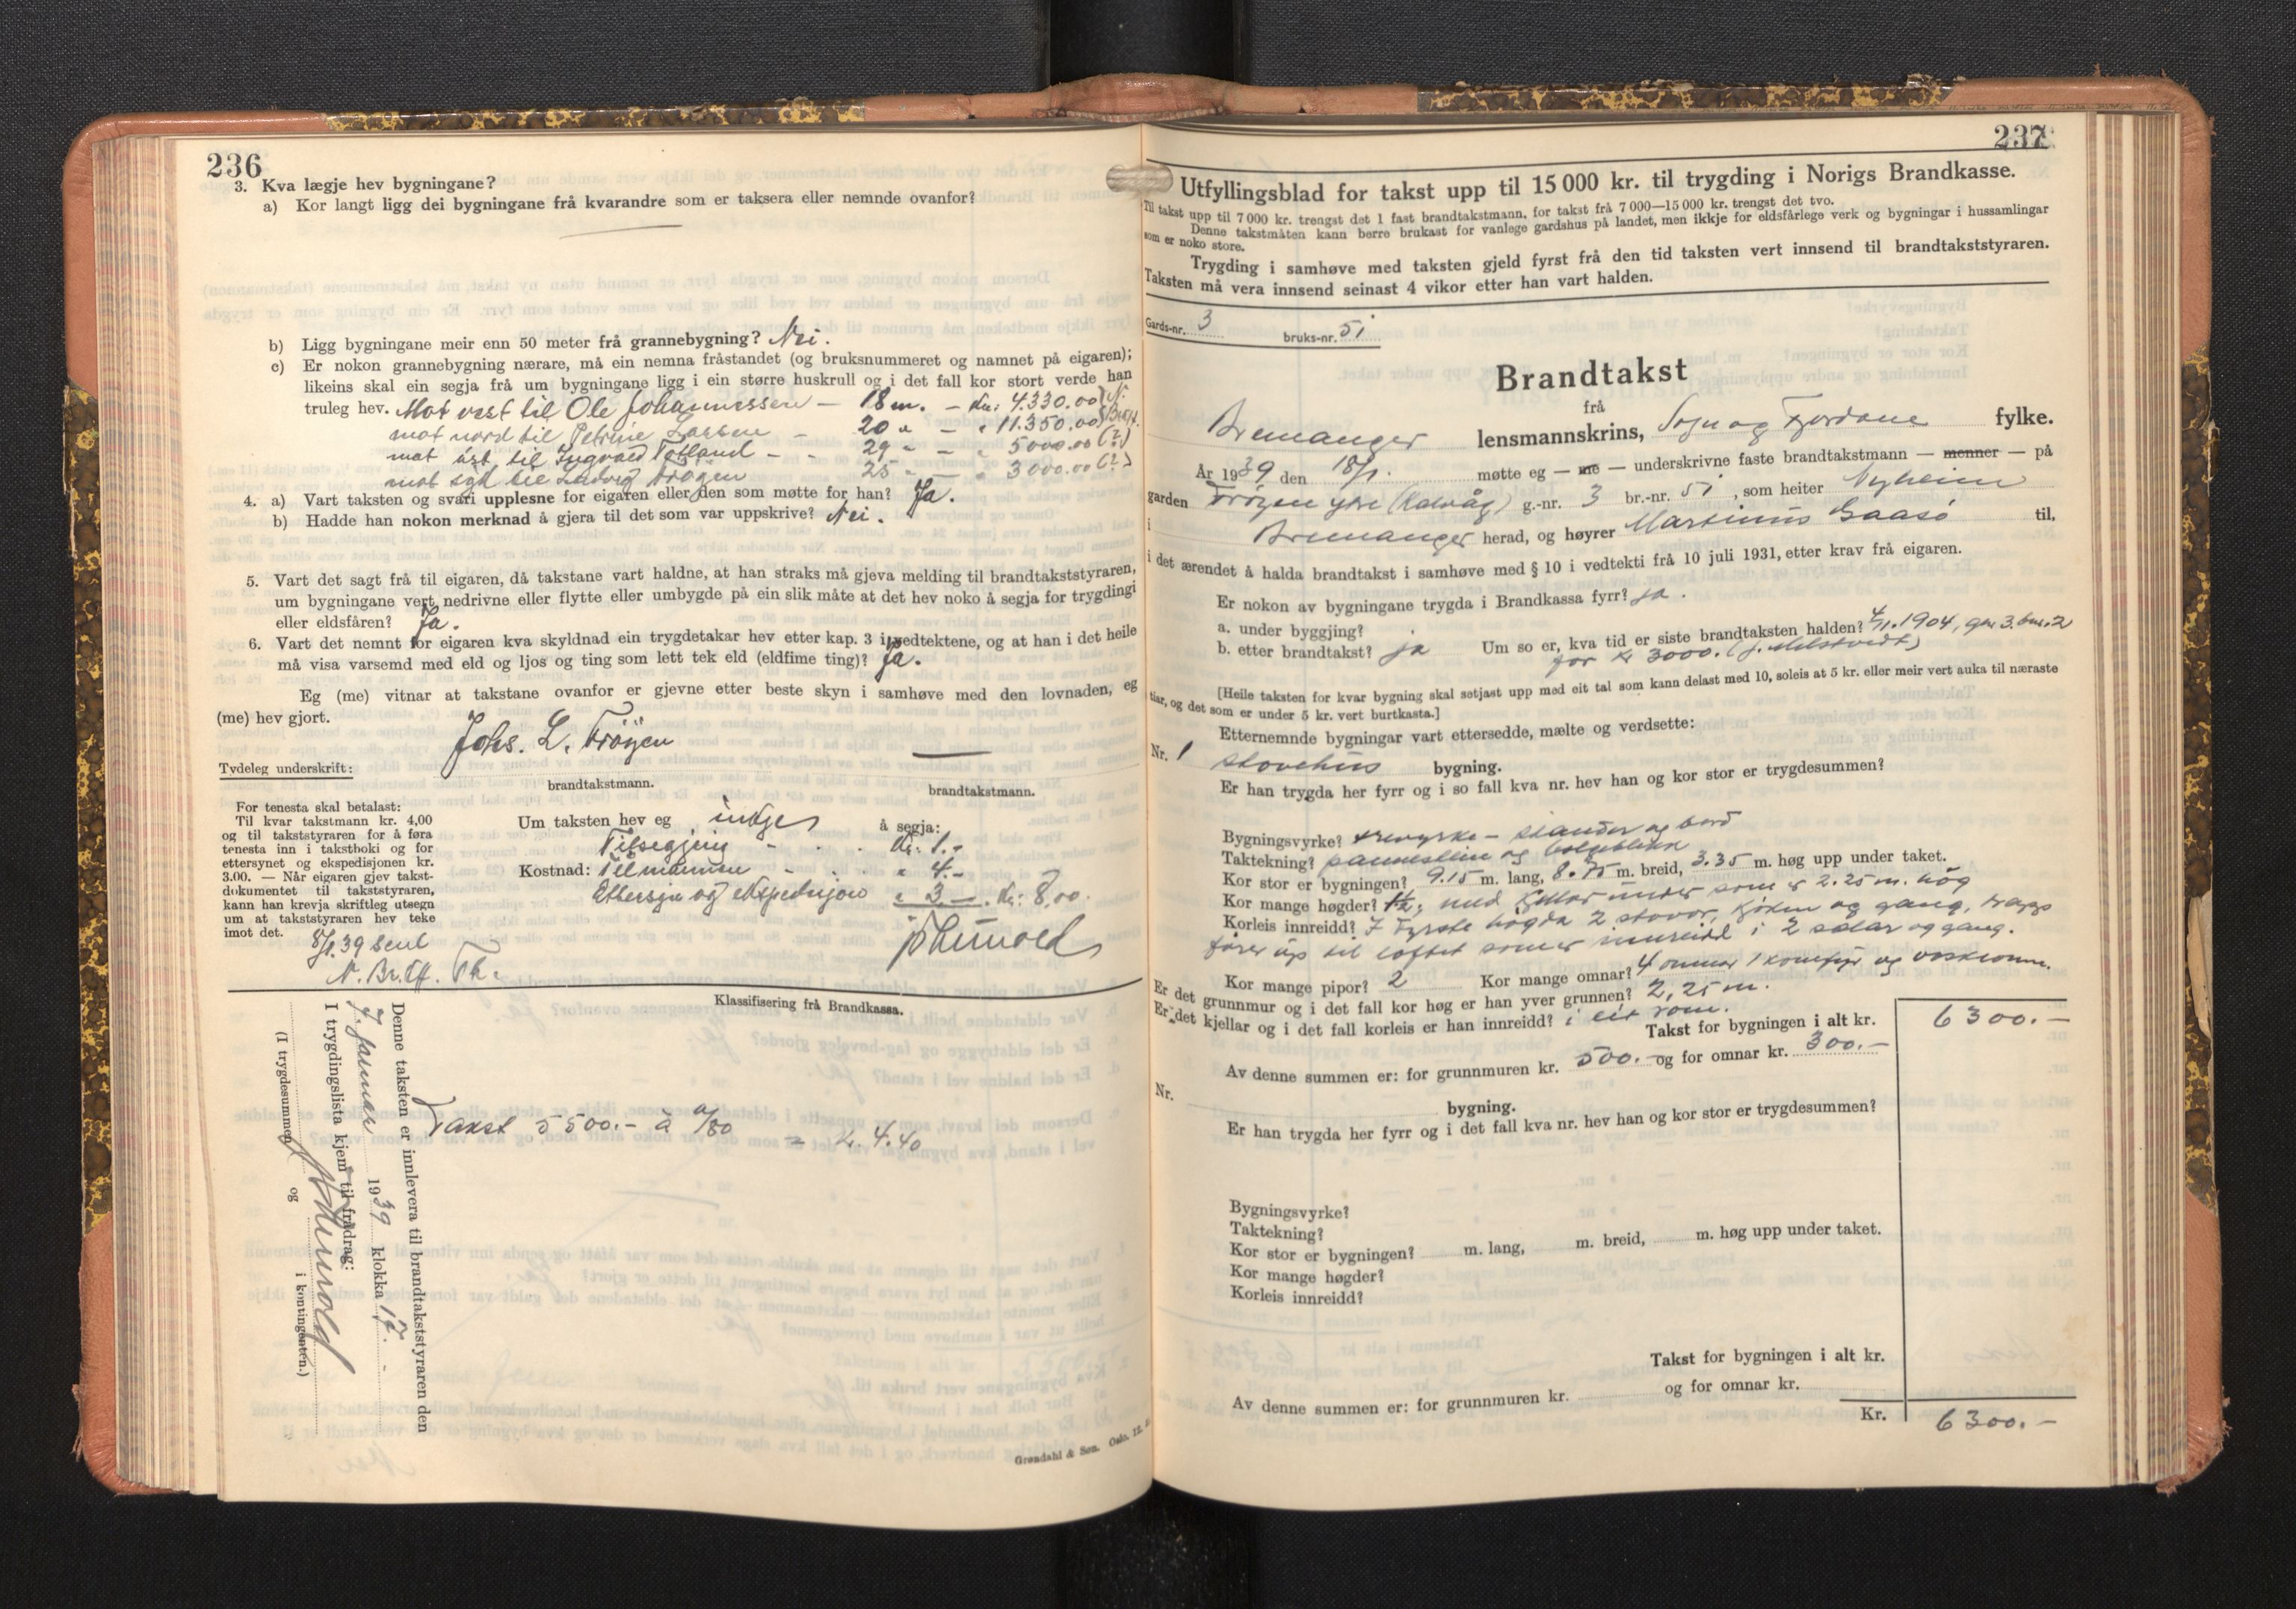 236
3. Kva lægje hev bygningane?
a) Kor langt ligg dei bygningane frå kvarandre som er taksera eller nemnde ovanfor?
b) Ligg bygningane meir enn 50 meter frå grannebygning? Nei.
c) Er nokon grannebygning nærare, må ein nemna fråstandet (og bruksnummeret og namnet på eigaren);
likeins skal ein segja frå um bygningane ligg i ein større huskrull og i det fall kor stort verde han
truleg hev. Mot vest til Ole Johannessen — 18 m. — Kr: 4.330.00
mot nord til Petrine Larsen — 20 " — " 11.350.00
mot aust til Ingvald Totland — - 29 " — " 5000.00 (?)
mot syd til Ludvig Frøyen 25 " — " 3000.00 (?)
4. a) Vart taksten og svari upplesne for eigaren eller den som møtte for han? Ja.
b) Hadde han nokon merknad å gjera til det som var uppskrive? Nei.
5. Vart det sagt frå til eigaren, då takstane vart haldne, at han straks må gjeva melding til brandtakststyraren,
um bygningane vert nedrivne eller flytte eller umbygde på ein slik måte at det hev noko å segja for trygdingi
eller eldsfåren? Ja.
6. Vart det nemnt for eigaren kva skyldnad ein trygdetakar hev etter kap. 3 i vedtektene, og at han i det heile
må visa varsemd med eld og ljos og ting som lett tek eld (eldfime ting)? Ja.
Eg (me) vitnar at takstane ovanfor er gjevne etter beste skyn i samhøve med den lovnaden, eg
(me) hev gjort.
Johs. L. Frøyen
Tydeleg underskrift:
brandtakstmann. brandtakstmann.
For tenesta skal betalast:
Til kvar takstmann kr. 4,00
og til takststyraren for å føra
tenesta inn i takstboki og for
ettersynet og ekspedisjonen kr.
3.00. — Når eigaren gjev takst-
dokumentet til takststyraren,
kann han krevja skriftleg utsegn
um at takststyraren hev teke
imot det.
Um taksten hev eg intge å segja:
Tilsegjing - . . Kr: 1.-
Kostnad: Til mannen - . . " 4.-
Ettersyn og ekspedisjon " 3.— Kr: 8,00.
8/1.39 sent
N. Br.
Klassifisering frå Brandkassa.
Takst 5500.- à a/80 = kr. 4.40
Denne taksten er innlevera til brandtakststyraren den
7. januar 1939 klokka 17.
I trygdingslista kjem til frådrag:
(I trygdesummen og i kontingenten.)
Grøndahl & Søn. Oslo.
237
Utfyllingsblad for takst upp til 15 000 kr. til trygding i Norigs Brandkasse.
Til takst upp til 7 000 kr. trengst det 1 fast brandtakstmann, for takst frå 7 000—15 000 kr. trengst det tvo.
Denne takstmåten kann berre brukast for vanlege gardshus på landet, men ikkje for eldsfårlege verk og bygningar i hussamlingar
som er noko store.
Trygding i samhøve med taksten gjeld fyrst frå den tid taksten vert innsend til brandtakststyraren.
Taksten må vera innsend seinast 4 vikor etter han vart halden.
Gards-nr. 3 bruks-nr. 51
Brandtakst
frå
Bremanger lensmannskrins, Sogn og Fjordane fylke.
År 1939 den møtte eg — me — underskrivne faste brandtakstmann — menner — på
garden Frøyen ytre (Kalvåg) g.-nr. 3 br.-nr. 51, som heiter Nyheim
i Bremanger herad, og høyrer Martinus Gaasø til,
i det ærendet å halda brandtakst i samhøve med § 10 i vedtekti frå 10 juli 1931, etter krav frå eigaren.
Er nokon av bygningane trygda i Brandkassa fyrr? ja.
a. under byggjing?
b. etter brandtakst? ja Um so er, kva tid er siste brandtaksten halden? 4/11.1904, gnr 3. bnr. 2
for kr 3000.
[Heile taksten for kvar bygning skal setjast upp med eit tal som kann delast med 10, soleis at 5 kr. eller meir vert auka til næraste
tiar, og det som er under 5 kr. vert burtkasta.]
Etternemnde bygningar vart ettersedde, mælte og verdsette:
Nr. 1 stovehus bygning.
Er han trygda her fyrr og i so fall kva nr. hev han og kor stor er trygdesummen?
Bygningsvyrke? trevyrke — stander og bord
Taktekning? pannestein og bølgeblikk
Kor stor er bygningen? 9.15 m. lang, 8.75 m. breid, 3.35 m. høg upp under taket.
Kor mange høgder? 1½, med kjellar under som er 2.25 m. høg
Korleis innreidd? I fyrste høgda 2 stovor, kjøken og gang, trapp
fører up til loftet som er innreidd i 2 salar og gang.
Kor mange pipor? 2 Kor mange omnar? 4 omnar 1 komfyr og vaskeomn.
Er det grunnmur og i det fall kor høg er han yver grunnen? 2,25 m.
Er det kjellar og i det fall korleis er han innreidd? i eit rom.
Takst for bygningen i alt kr. 6300.—
Av denne summen er: for grunnmuren kr. 500.- og for omnar kr. 300.—
Nr. bygning.
Er han trygda her fyrr og i det fall kva nr. hev han og kor stor er trygdesummen?
Bygningsvyrke?
Taktekning?
Kor stor er bygningen? m. lang, m. breid, m. høg upp under taket.
Kor mange høgder?
Korleis innreidd?
Takst for bygningen i alt kr.
Av denne summen er: for grunnmuren kr. og for omnar kr.
Kr. 6300.—